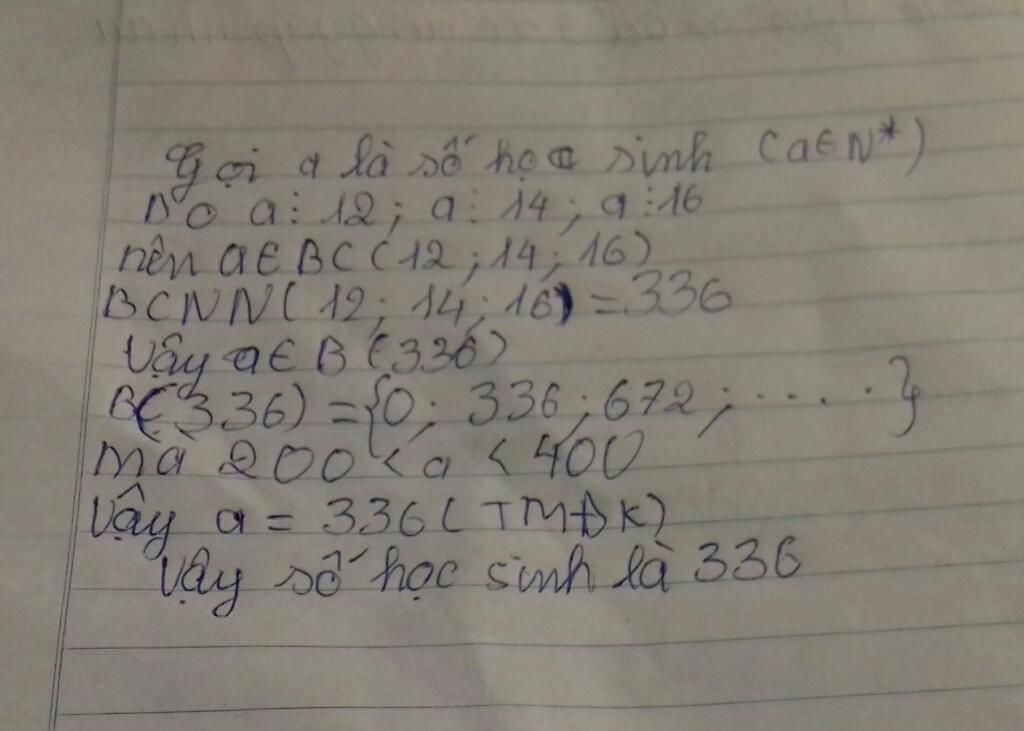 Gọi a là số học sinh (a∈N*)
Do a⋮12; a⋮14; a⋮16
nên a∈BC(12;14;16)
BCNN(12;14;16)=336
Vậy a∈B(336)
B(336)={0;336;672;.....}
mà 200<a<400
Vậy a=336(TMĐK)
Vậy số học sinh là 336